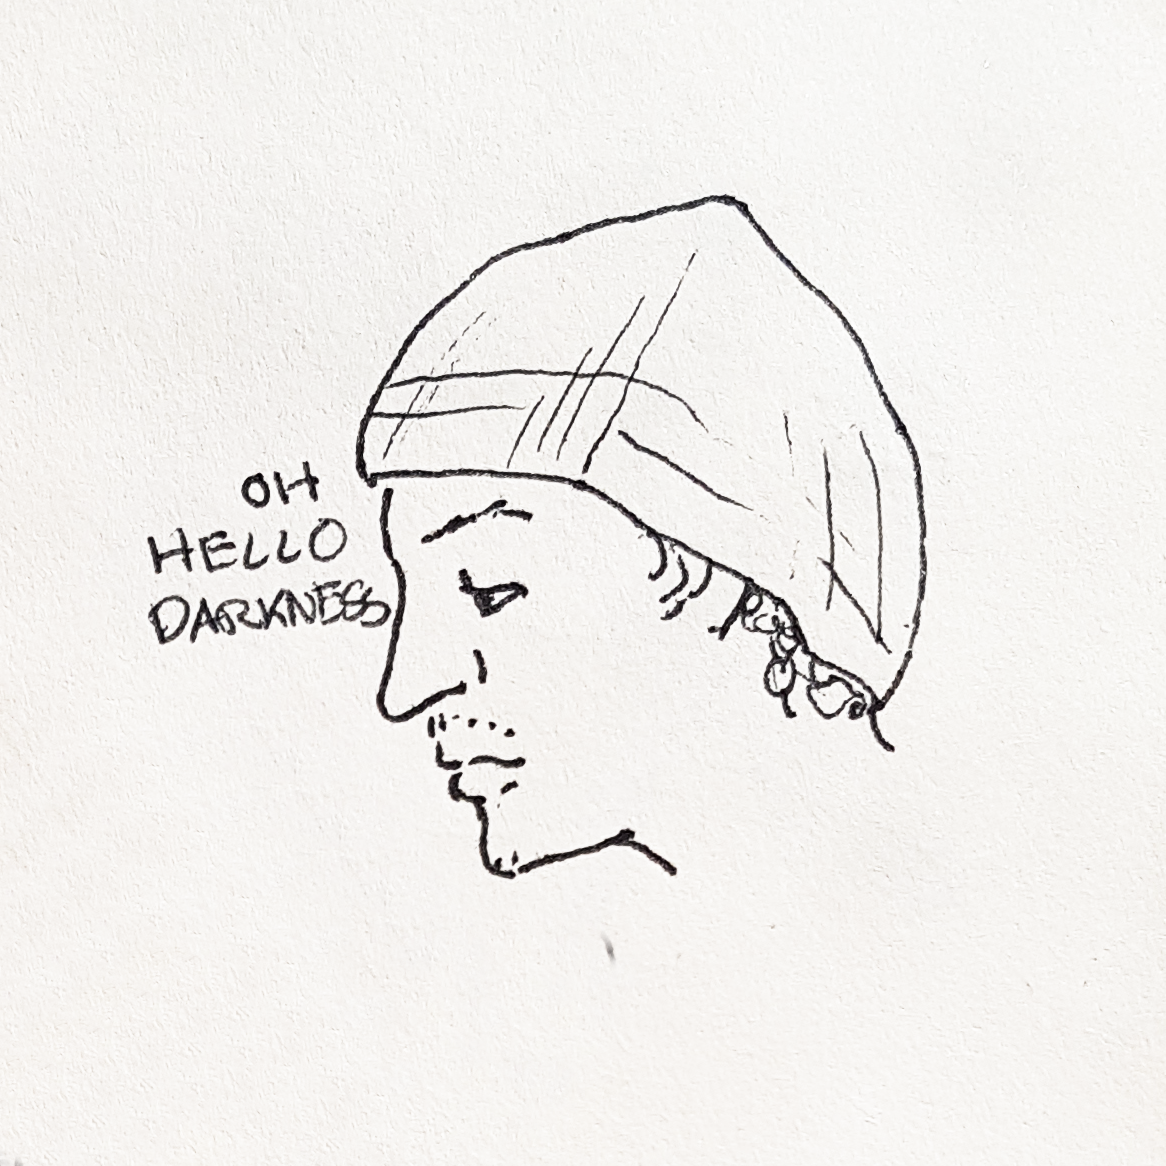 OH
HELLO
DARKNESS